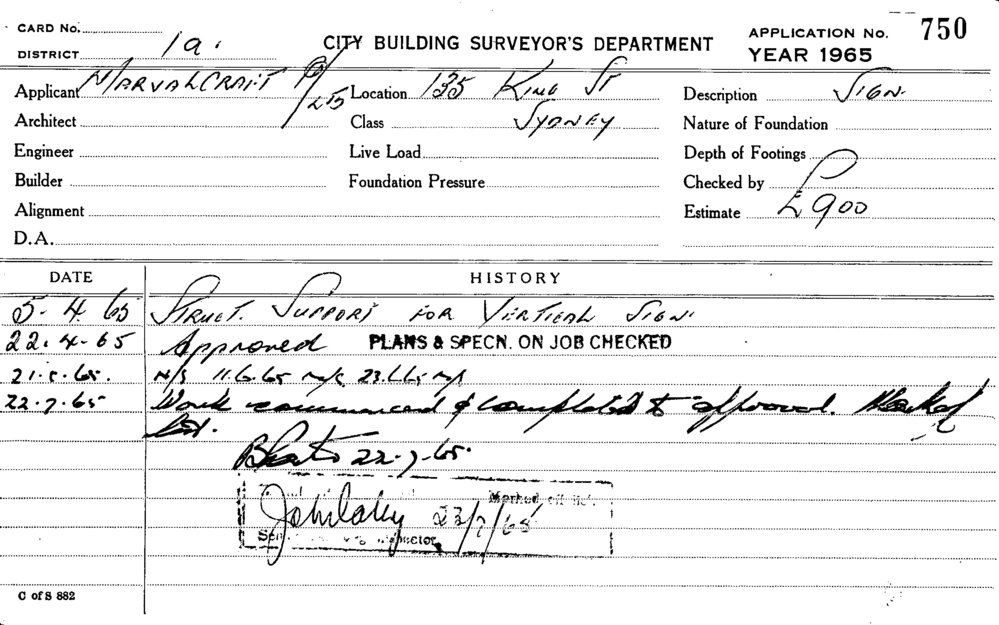 CARD No.
DISTRICT 1a.
CITY BUILDING SURVEYOR'S DEPARTMENT
APPLICATION No. 750
YEAR 1965
Applicant MARVALCRAFT P/L
Location 135 KING ST
Description SIGN.
Architect
Class SYDNEY
Nature of Foundation
Engineer
Live Load
Depth of Footings
Builder
Foundation Pressure
Checked by
Alignment
Estimate £900
D.A.
DATE HISTORY
5.4.65 STRUCT. SUPPORT FOR VERTICAL SIGN.
22.4.65 Approved PLANS & SPECN. ON JOB CHECKED
N/S 11.6.65 N/S
22.7.65 Work commenced & completed to approval. Marked
list.
22.7.65.
Marked off list.
23/7/65
C of S 882